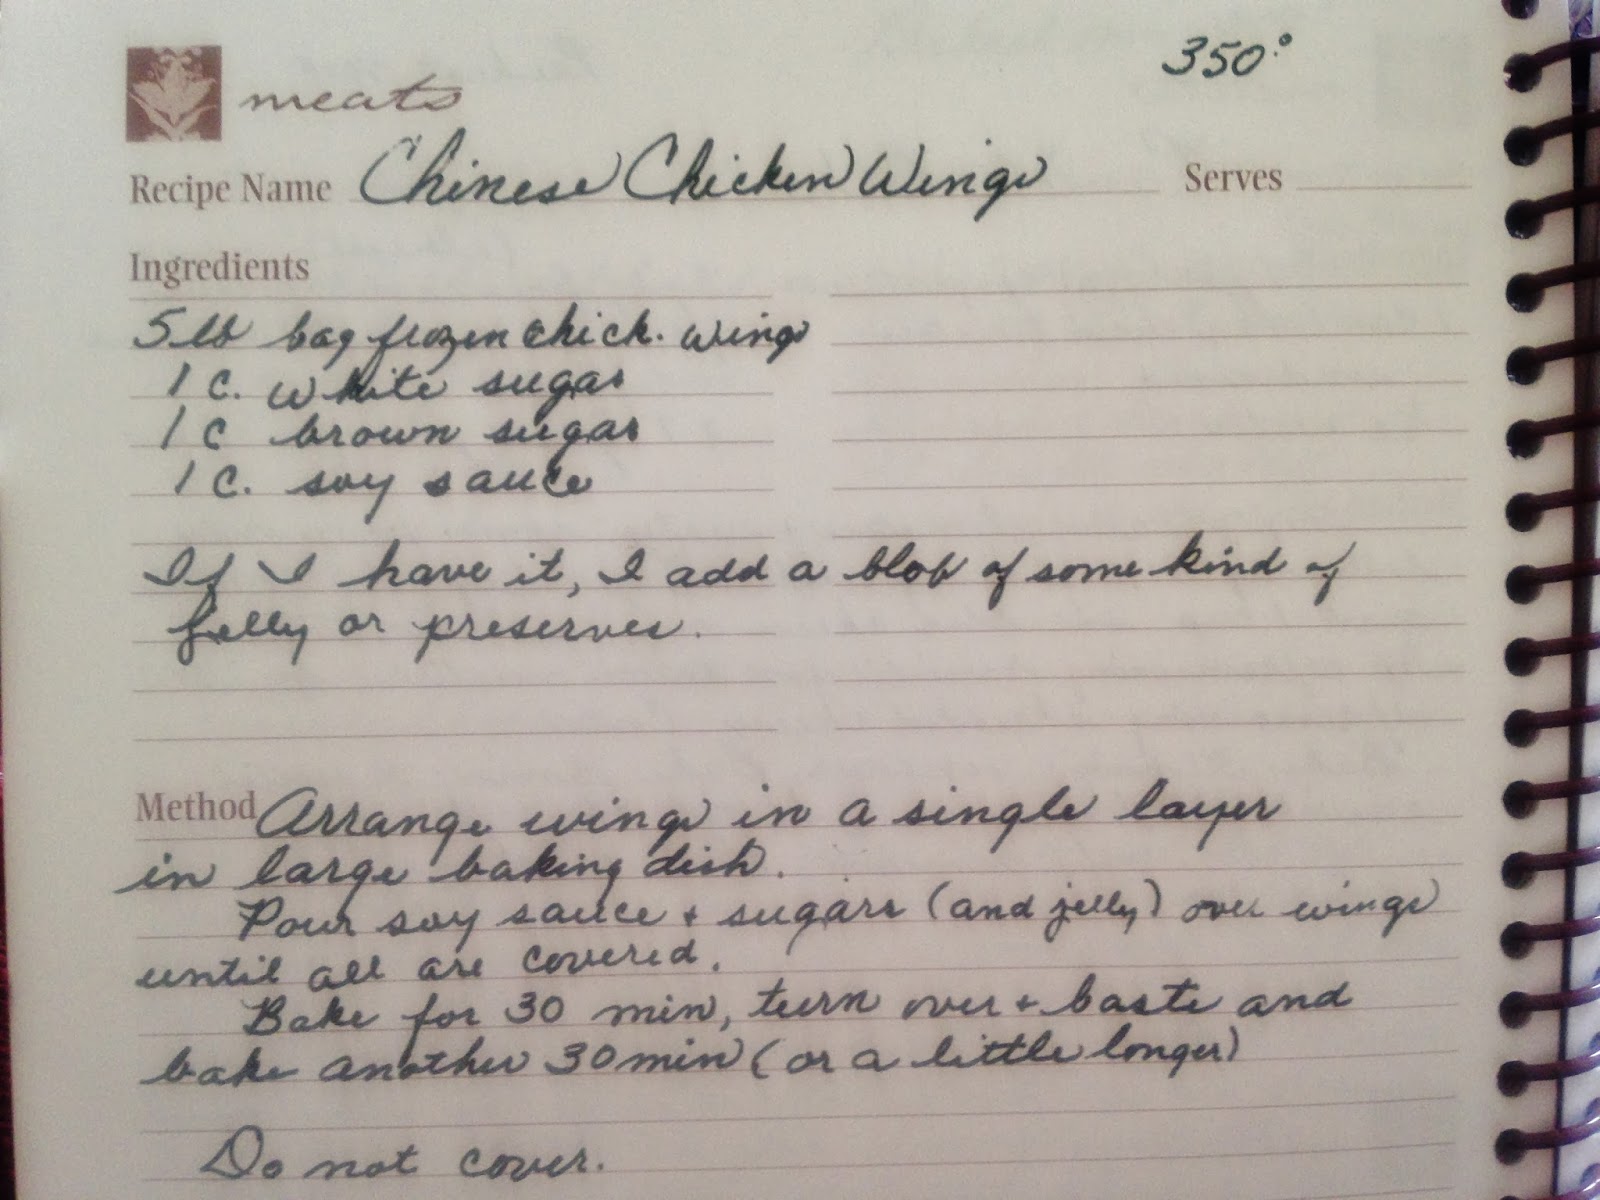 350°
meats
Recipe Name Chinese Chicken Wings Serves
Ingredients
5 lb bag frozen chick. wings
1 c. white sugar
1 c brown sugar
1 c. soy sauce
If I have it, I add a blob of some kind of
jelly or preserves.
Method Arrange wings in a single layer
in large baking dish.
Pour soy sauce + sugars (and jelly) over wings
until all are covered.
Bake for 30 min, turn over + baste and
bake another 30 min (or a little longer)
Do not cover.